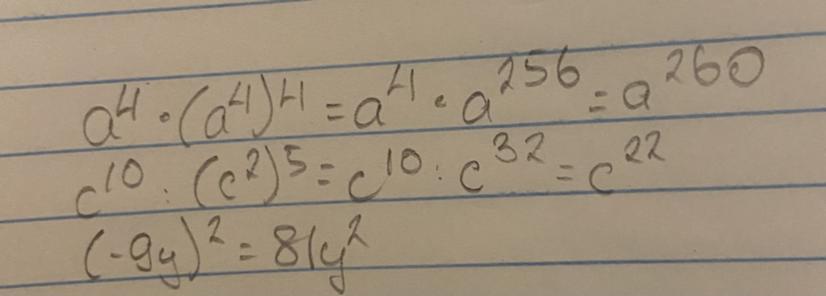 a⁴ · (a⁴)⁴ = a⁴ · a²⁵⁶ = a²⁶⁰
c¹⁰ : (c²)⁵ = c¹⁰ : c³² = c²²
(-9y)² = 81y²